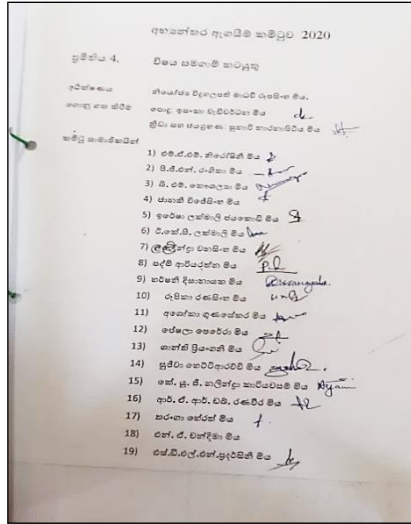 අභ්‍යන්තර ඇගයීම් කමිටුව 2020
ප්‍රමිතිය 4. විෂය සමගාමී කටයුතු
අධීක්ෂණය නියෝජ්‍ය විදුහල්පති මාධවී රූපසිංහ මිය.
ගොනු ගත කිරීම පොදු: ඉසංකා වැඩිවර්ධන මිය
ක්‍රීඩා සහ ජයග්‍රහණ: සුනාරි කාරනාසිටිය මිය
කමිටු සාමාජිකයින්
1) එම්.ඒ.එම්. නිරෝෂිනී මිය
2) පී.ජී.එන්. රංගිකා මිය
3) බී. එම්. කෞශල්‍යා මිය
4) ජානකී විජේසිංහ මිය
5) ඉරේෂා ලක්මාලි ජයකොඩි මිය
6) ඊ.කේ.සී. ලක්මාලි මිය
7) වනසිංහ මිය
8) පද්මි ආරියරත්න මිය P.A
9) හර්ෂනි දිසානායක මිය Dissanayake
10) රූපිකා රණසිංහ මිය
11) අශෝකා ගුණසේකර මිය
12) පේෂලා පෙරේරා මිය
13) ශාන්ති ප්‍රියංගනී මිය
14) සුජීවා හෙට්ටිආරච්චි මිය
15) කේ. යූ. ජී. නලින්ද්‍රා කාරියවසම් මිය
16) ආර්. ඒ. ආර්. ඩබ්. රණවීර මිය
17) තරංගා හේරත් මිය
18) එන්. ඒ. චන්දිමා මිය
19) එස්.ඩී.එල්.එන්.ප්‍රදර්ශිනී මිය